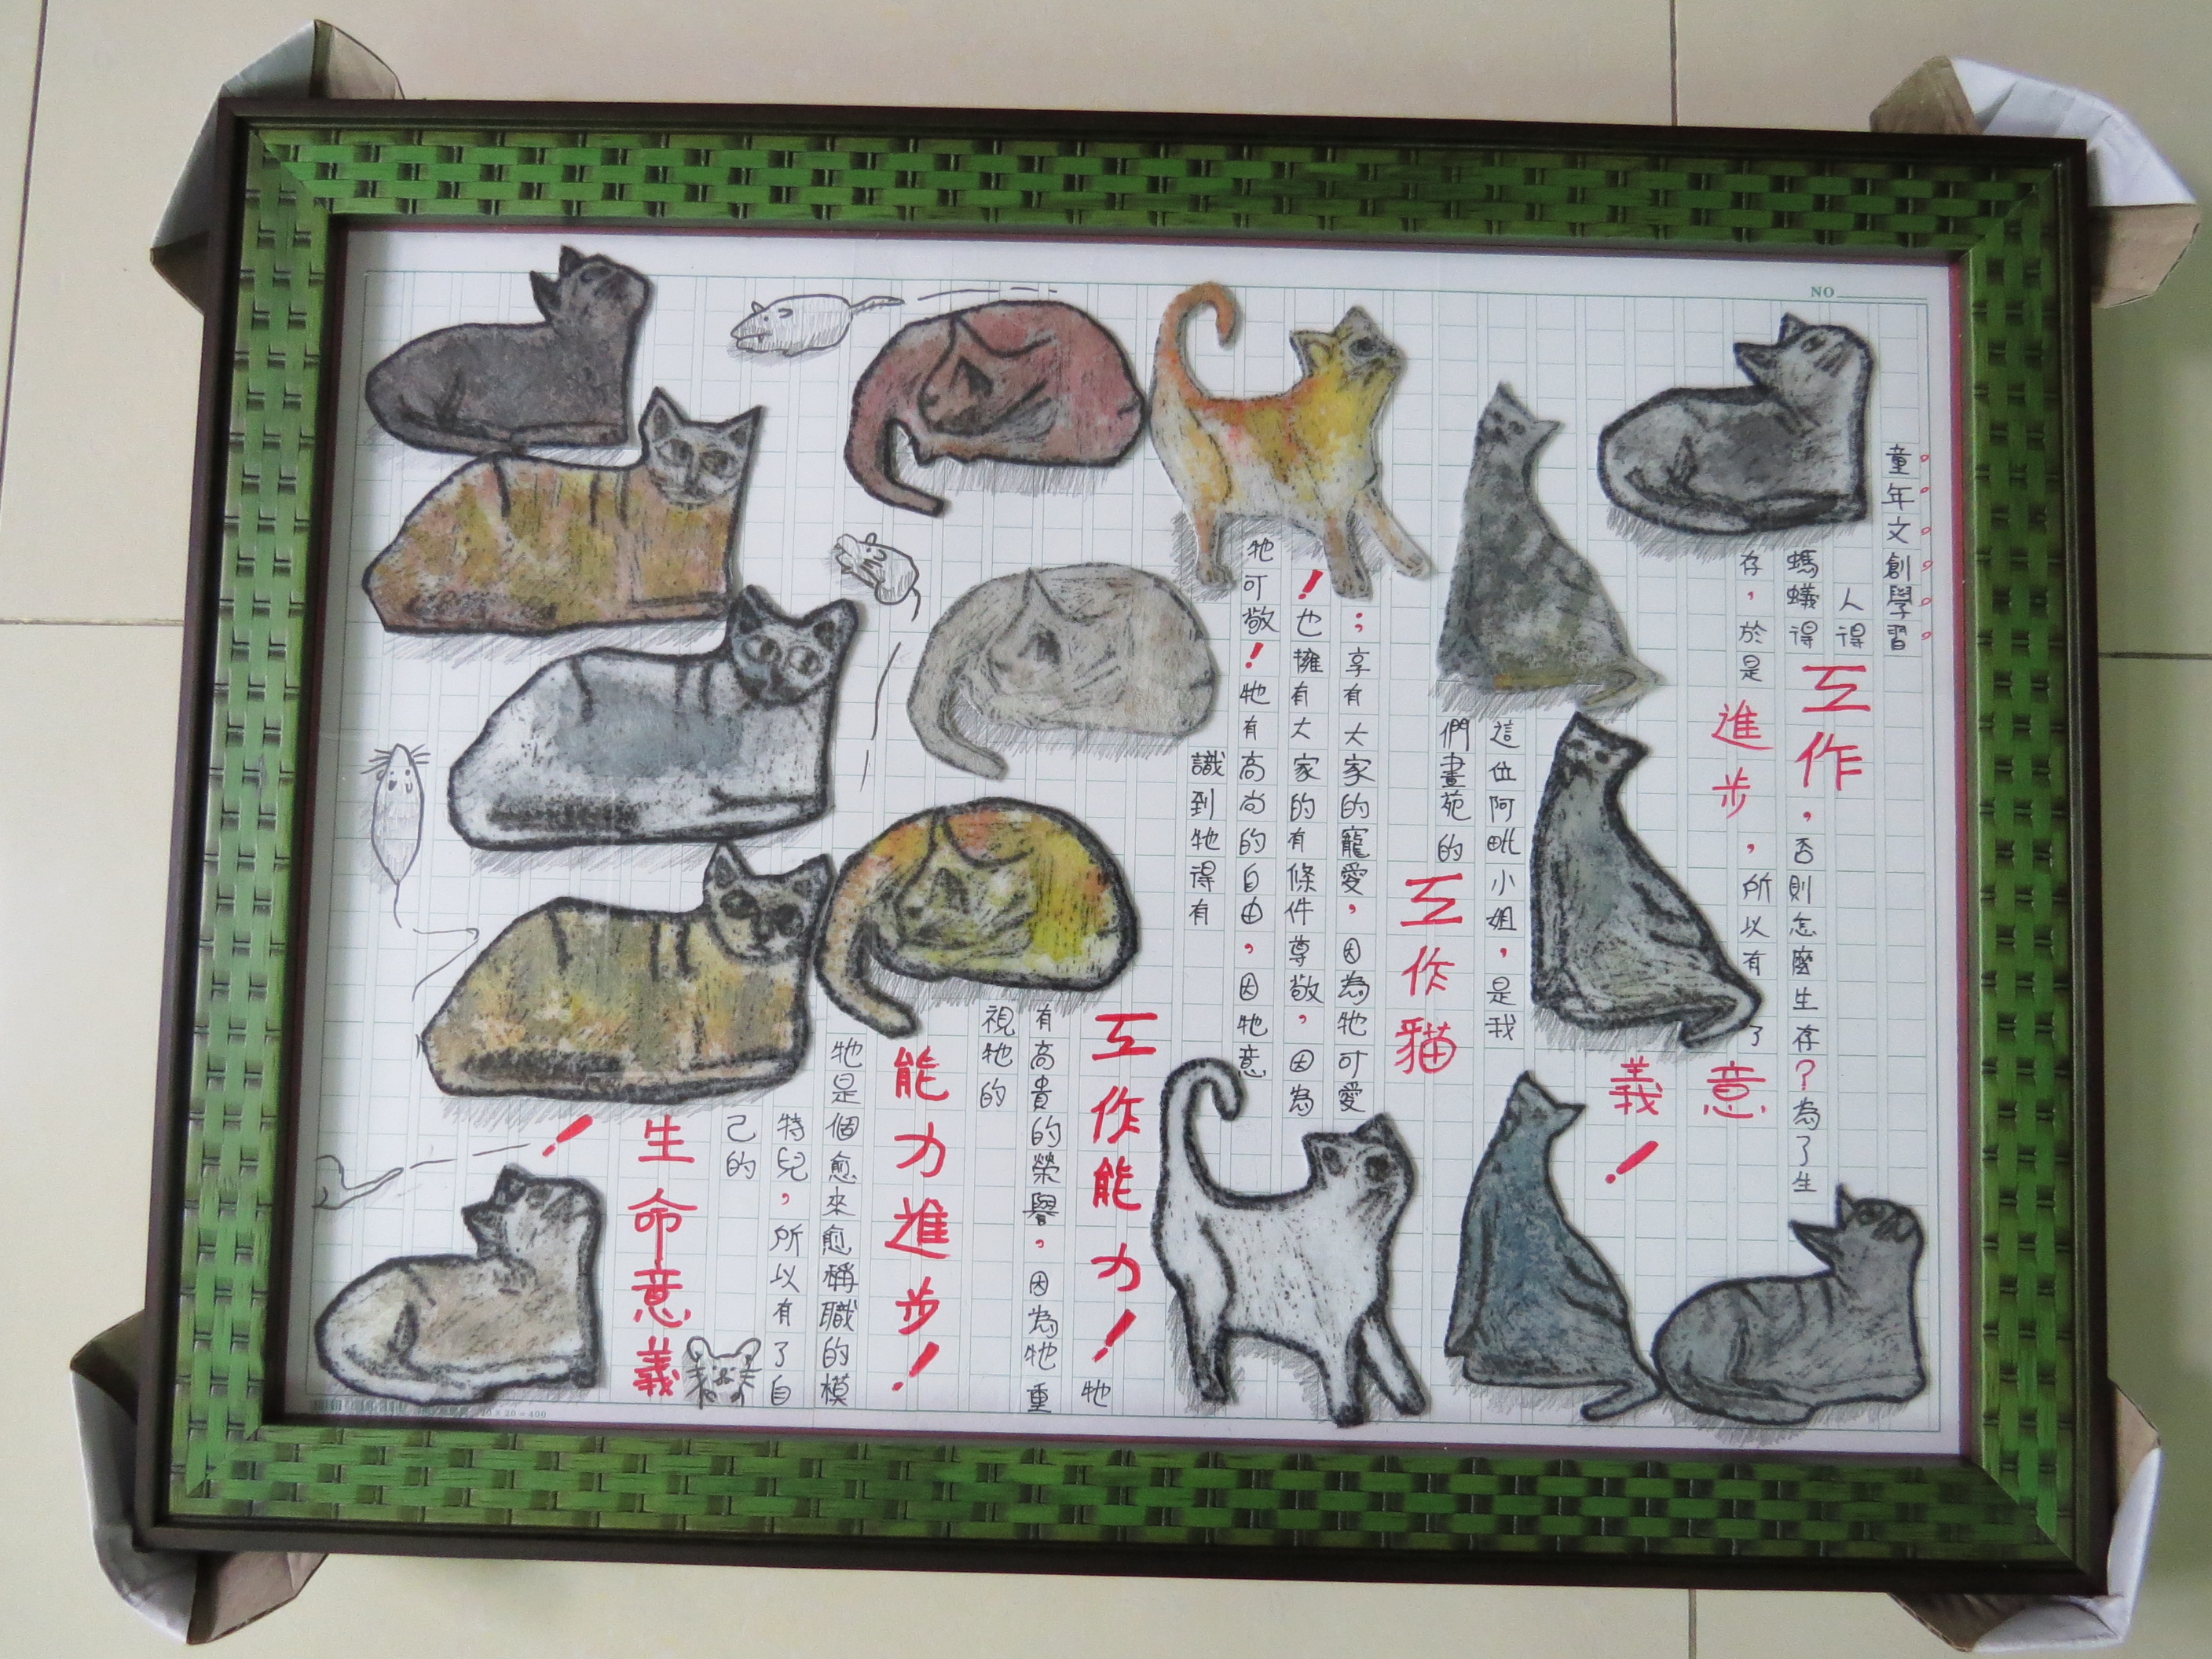 NO
童年文創學習
人得
螞蟻得
工作
，否則怎麼生存？為了生
存，於是
進步
，所以有了
意
義！
這位阿毗小姐，是我
們畫苑的
工作貓
；享有大家的寵愛，因為牠可愛
！也擁有大家的有條件尊敬，因為
牠可敬！牠有高尚的自由，因牠意
識到牠得有
工作能力！牠
有高貴的榮譽，因為牠重
視牠的
能力進步！
牠是個愈來愈稱職的模
特兒，所以有了自
己的
生命意義
！